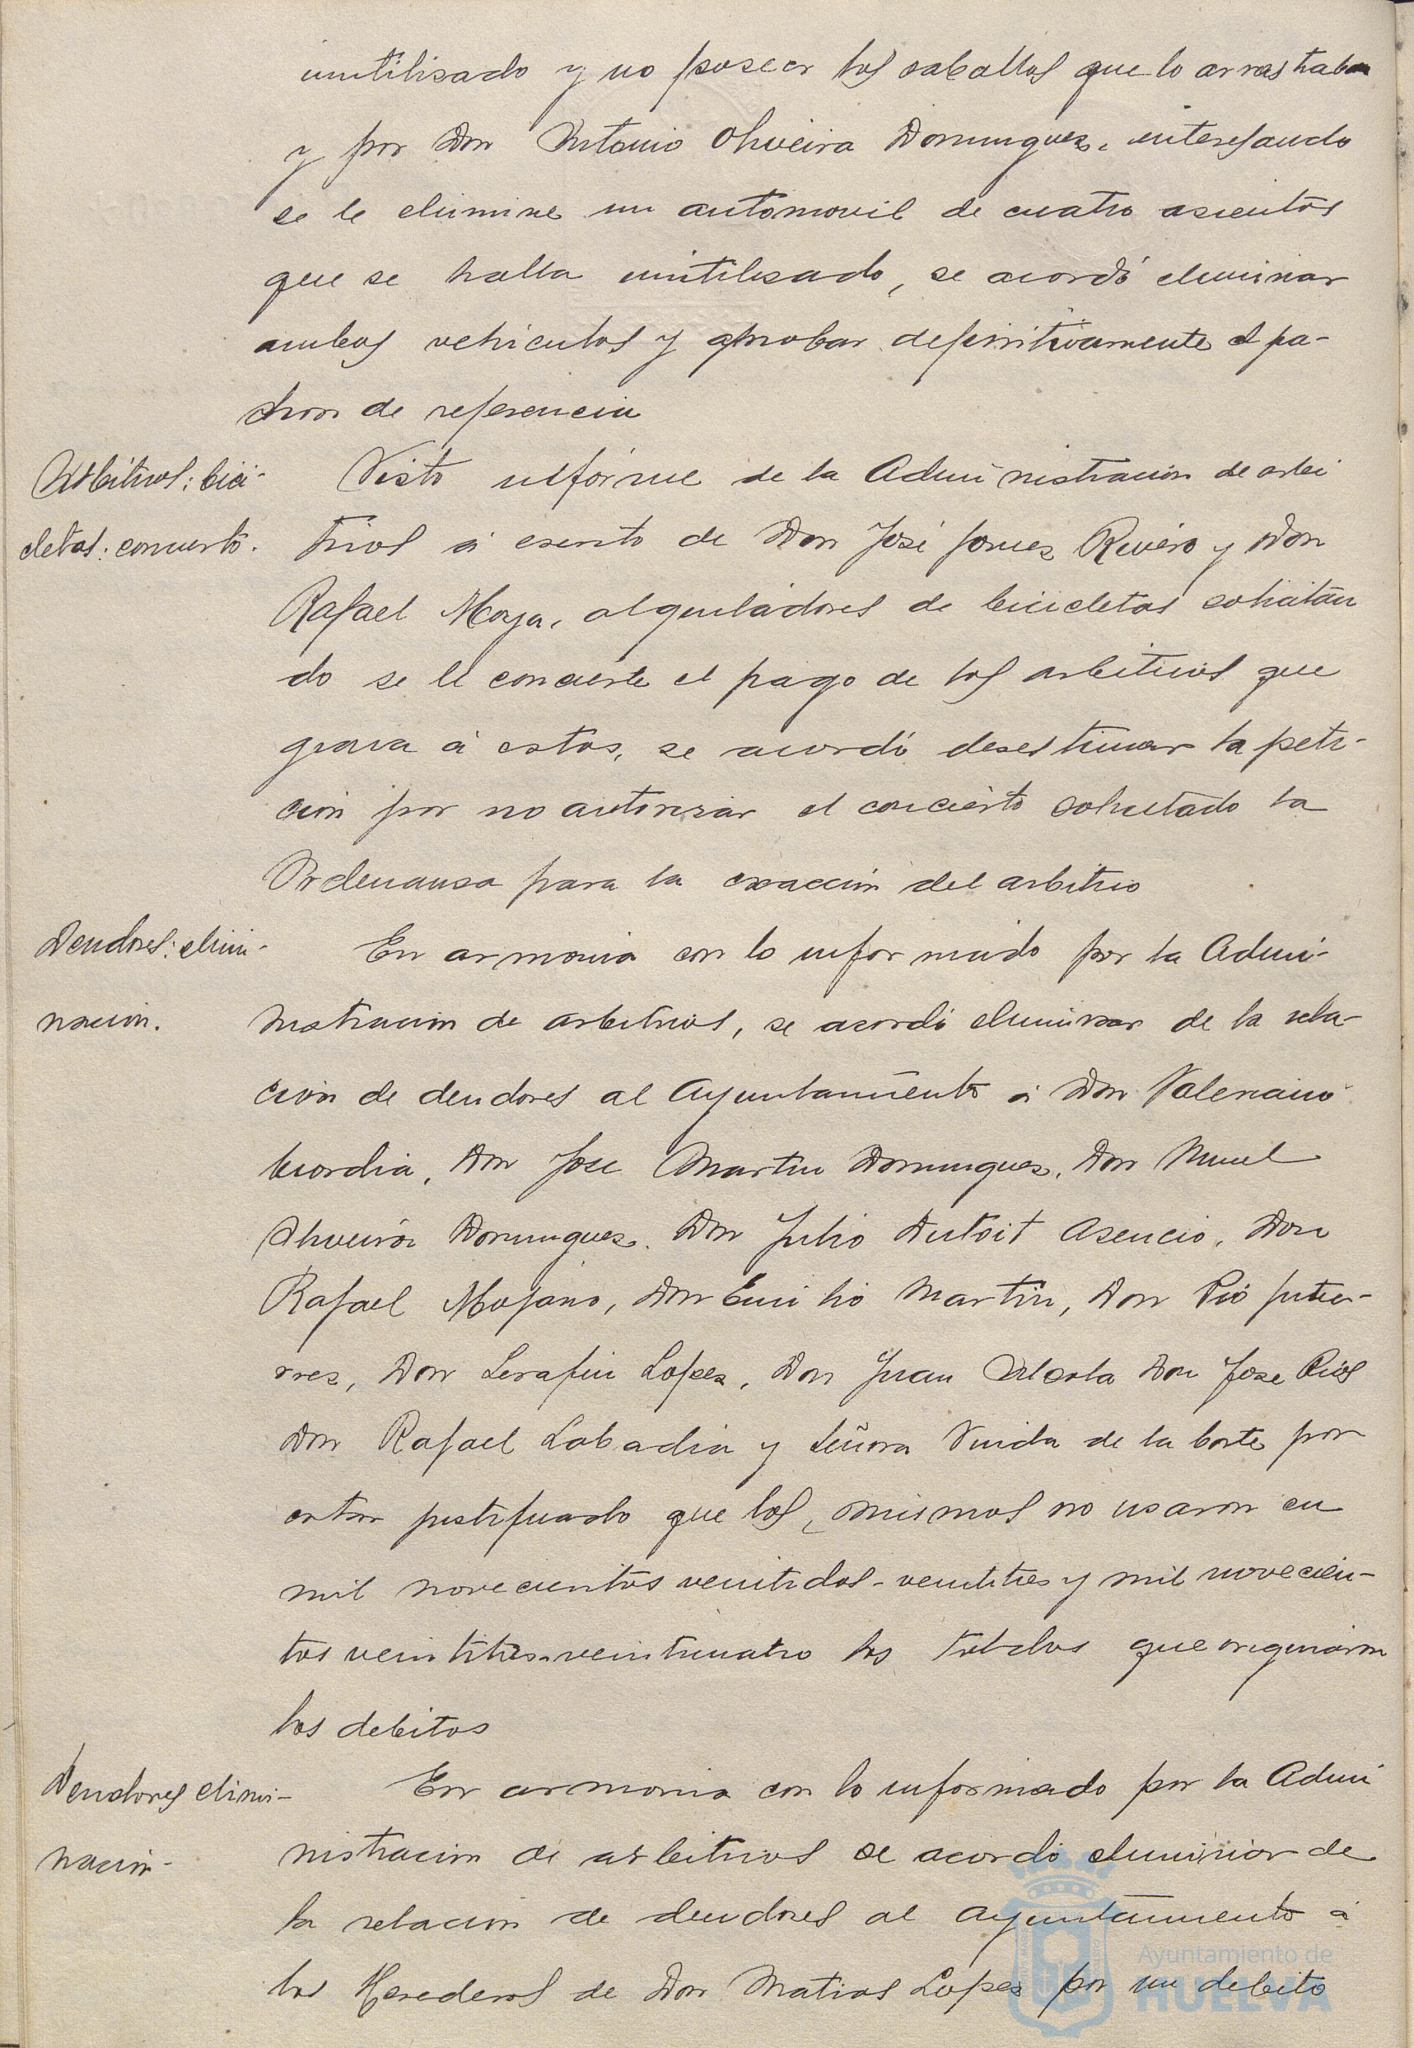 inutilisado y no poseer los caballos que lo arrastraban
y por Don Antonio Oliveira Domingues, interesando
se le elimine un automovil de cuatro asientos
que se halla inutilisado, se acordó eliminar
ambos vehiculos y aprobar definitivamente el pa-
dron de referencia
Arbitrios: bici-
cletas: concierto.
Visto informe de la Administracion de arbi
trios á escrito de Don José Gomes Rivero y Don
Rafael Moya, alquiladores de bicicletas solicitan
do se le concierte el pago de los arbitrios que
grava á estos, se acordó desestimar la peti-
cion por no autorisar el concierto solicitado la
Ordenansa para la exaccion del arbitrio
Deudores: elimi-
nacion.
En armonia con lo informado por la Admi-
nistracion de arbitrios, se acordó eliminar de la rela-
cion de deudores al Ayuntamiento á Don Valeriano
Don Jose Martin Domingues, Don
Oliveira Domingues. Don Julio Dutoit Asencio, Don
Rafael Mojano, Don Emilio Martin, Don Pio Gutie-
rres, Don Serafin Lopes, Don Juan Don Jose Rios
Don Rafael Labadia y Señora Viuda de la Corte por
estar justificado que los mismos no usaron en
mil novecientos veintidos-veintitres y mil novecien-
tos veintitres-veinticuatro los toldos que originaron
los debitos
Deudores elimi-
nacion-
En armonia con lo informado por la Admi
nistracion de arbitrios se acordó eliminar de
la relacion de deudores al Ayuntamiento á
los Herederos de Don Matias Lopes por un debito
Ayuntamiento de
HUELVA